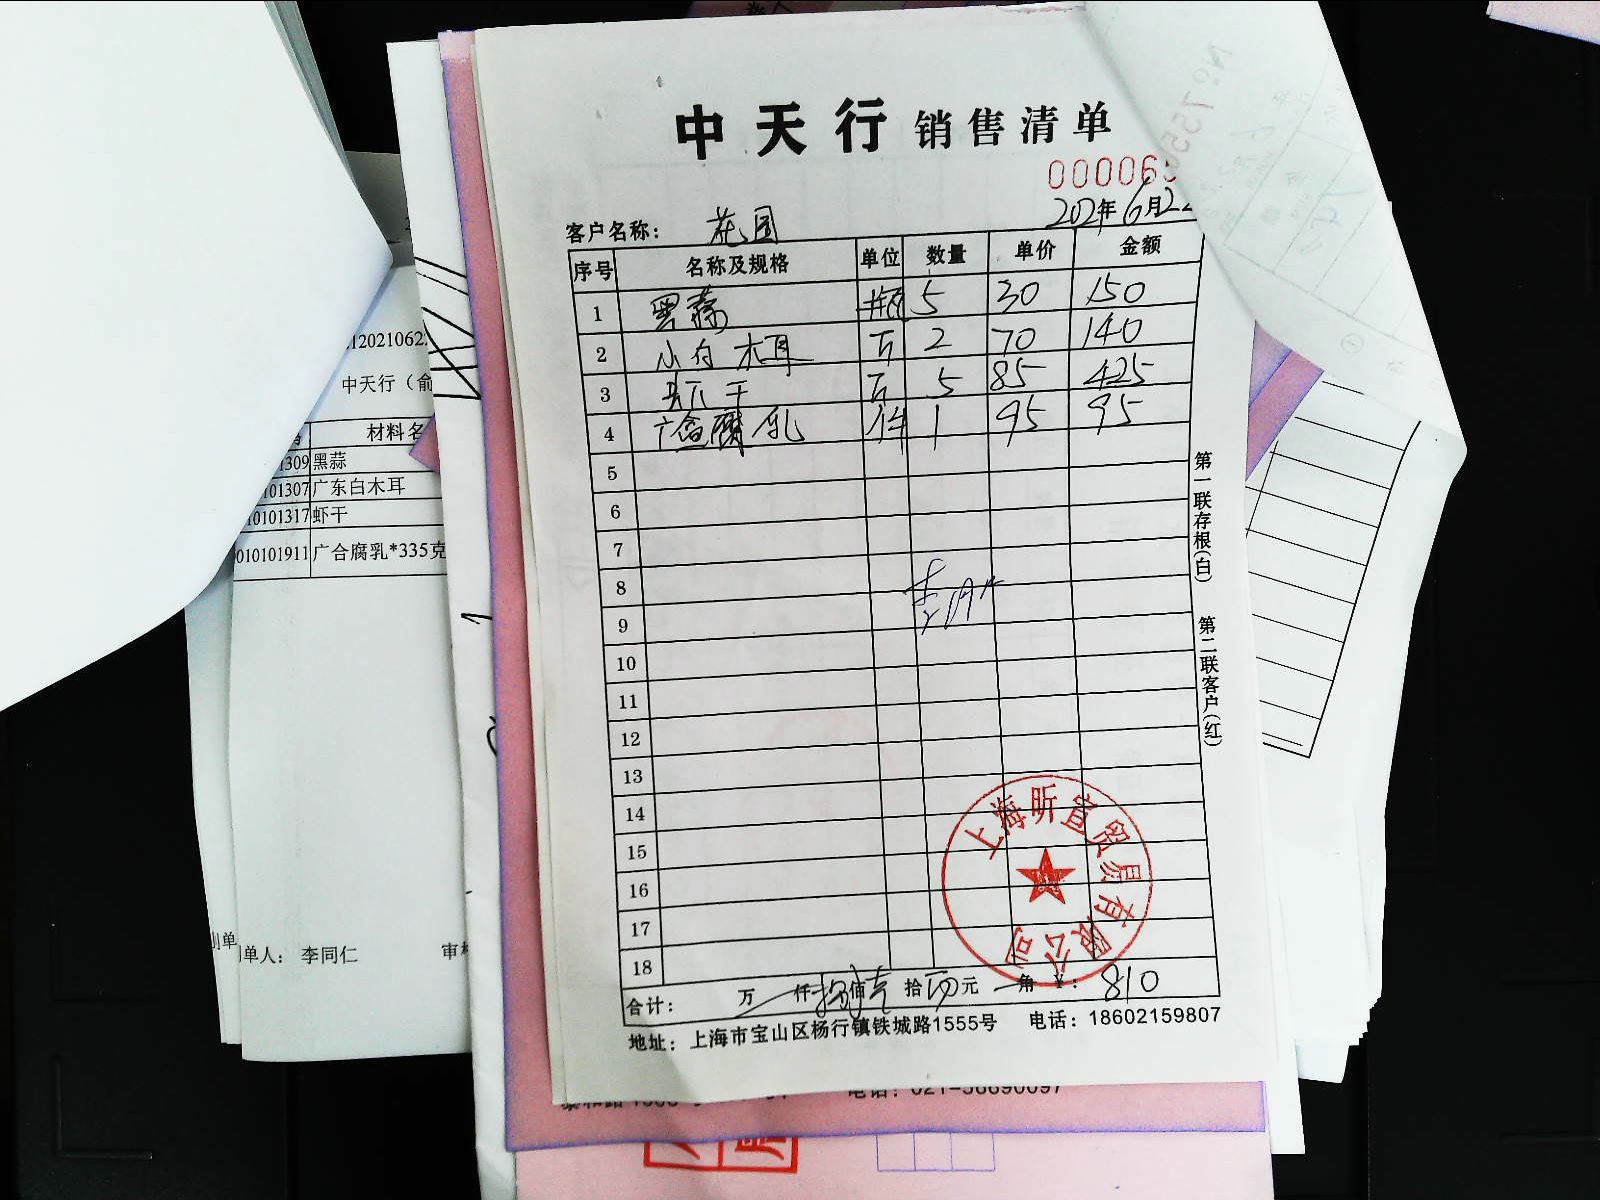 中天行 销售清单
00006
客户名称： 花园
202年6月22
序号 名称及规格 单位 数量 单价 金额
1 黑蒜 瓶 5 30 150
2 小白木耳 斤 2 70 140
3 虾干 斤 5 85 425
4 广合腐乳 件 1 95 95
5
6
7
8
9
10
11
12
13
14
15
16
17
18
合计： 万 仟 捌佰壹拾 元 角 ¥：810
地址：上海市宝山区杨行镇铁城路1555号 电话：18602159807
第一联存根(白) 第二联客户(红)
上海昕宜贸易有限公司
中天行（俞
材料名
1309 黑蒜
01307 广东白木耳
10101317 虾干
010101911 广合腐乳*335克
单人： 李同仁
审
电话：021-58690097